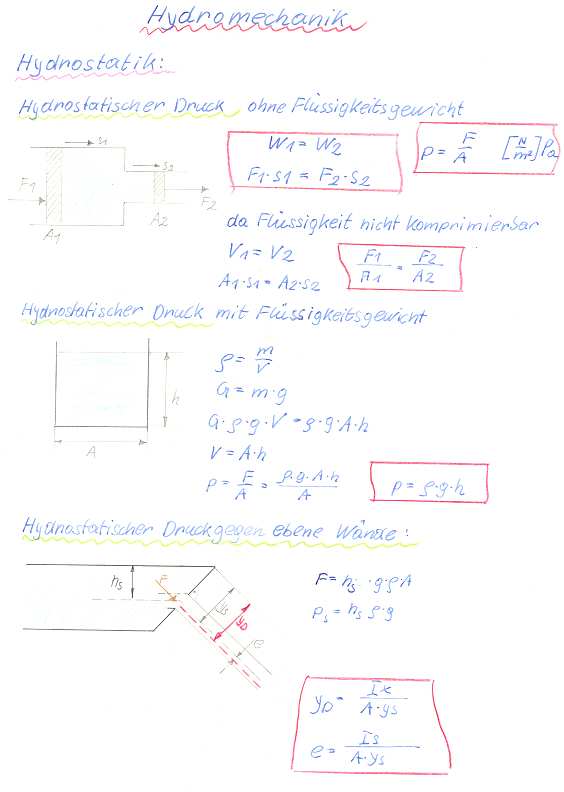 Hydromechanik
Hydrostatik:
Hydrostatischer Druck ohne Flüssigkeitsgewicht
s1
s2
F1
F2
A1
A2
W1 = W2
F1·s1 = F2·s2
p = F/A [N/m²] Pa
da Flüssigkeit nicht komprimierbar
V1 = V2
A1·s1 = A2·s2
F1/A1 = F2/A2
Hydrostatischer Druck mit Flüssigkeitsgewicht
h
A
ρ = m/V
G = m·g
G·ρ·g·V = ρ·g·A·h
V = A·h
p = F/A = ρ·g·A·h/A
p = ρ·g·h
Hydrostatischer Druck gegen ebene Wände:
hs
F
ys
yD
e
F = hs · g·ρ·A
ps = hs ρ·g
yD = Ix/A·ys
e = Is/A·ys